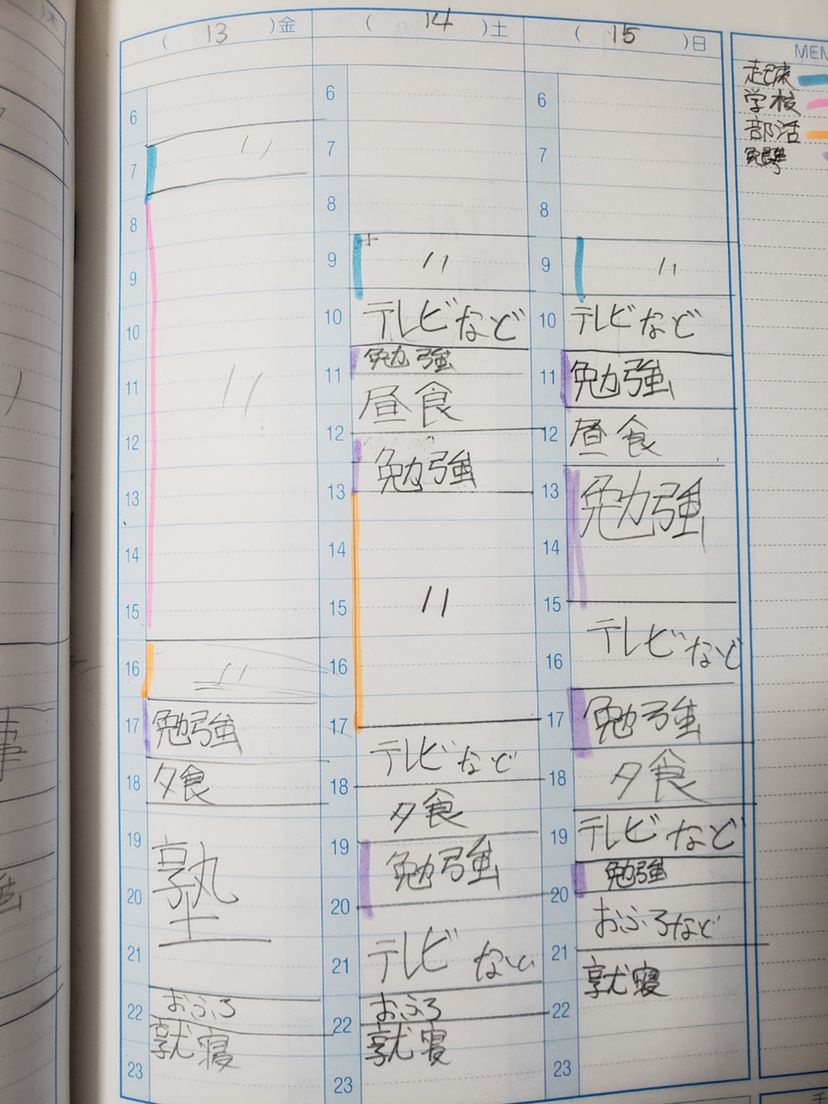 木
( 13 )金
( 14 )土
( 15 )日
MEM
起床
学校
部活
勉学
6
7
〃
8
9
10
11
〃
12
13
14
15
16
〃
17
勉強
18
夕食
19
塾
20
21
22
おふろ
就寝
23
6
7
8
9
〃
10
テレビなど
勉強
11
昼食
12
勉強
13
14
15
〃
16
17
テレビなど
18
夕食
19
勉強
20
テレビなど
21
おふろ
22
就寝
23
6
7
8
9
〃
10
テレビなど
11
勉強
12
昼食
13
勉強
14
15
テレビなど
16
17
勉強
18
夕食
19
テレビなど
勉強
20
おふろなど
21
就寝
22
23